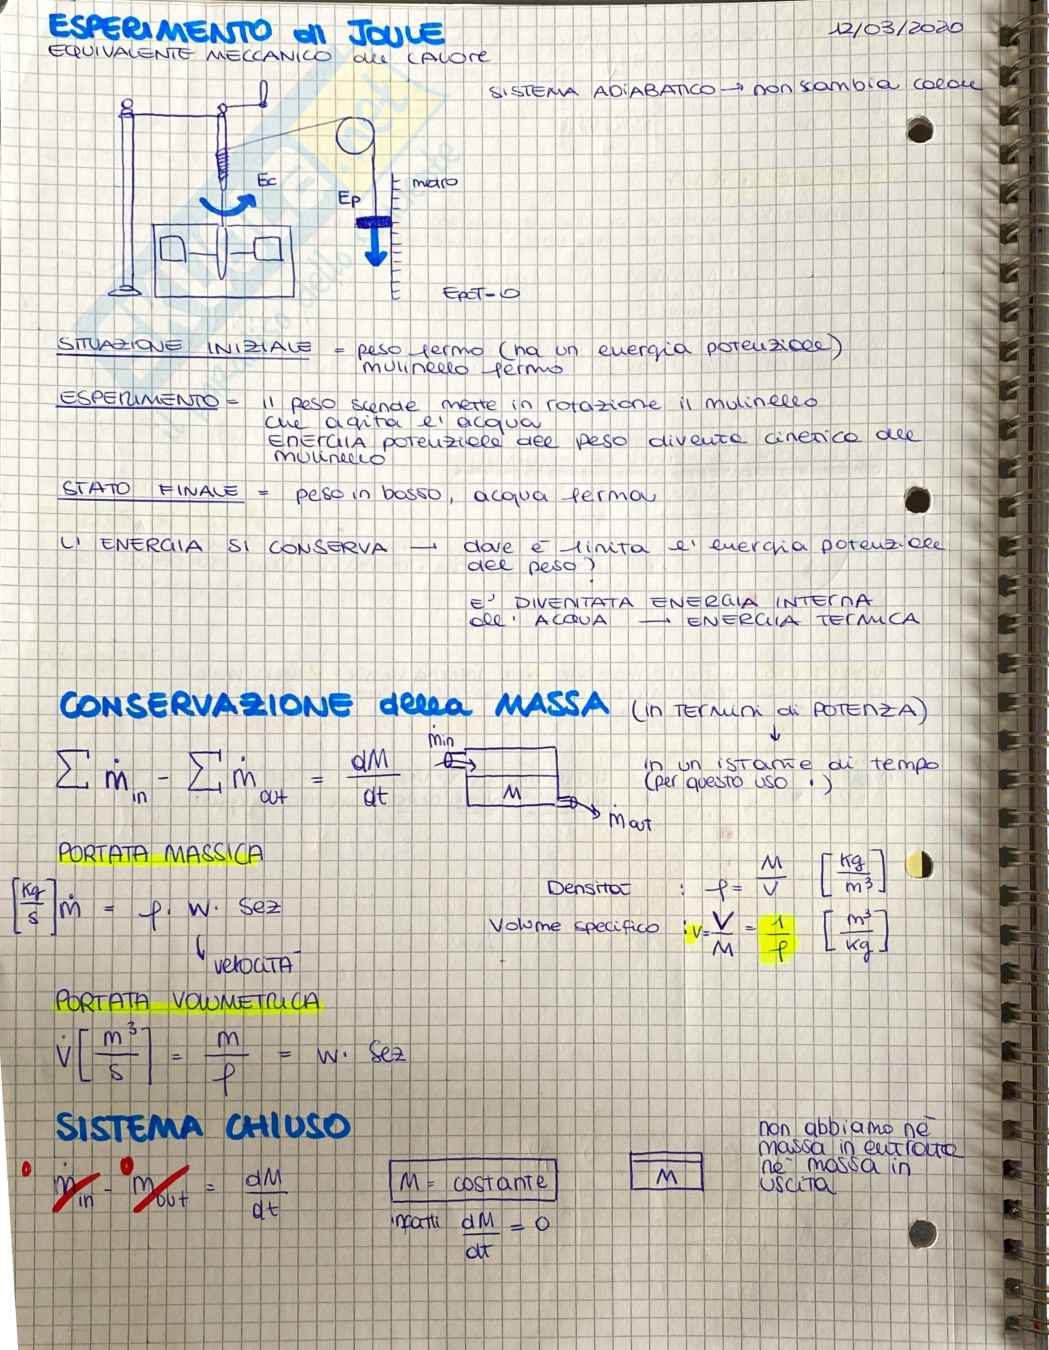 ESPERIMENTO di JOULE
12/03/2020
EQUIVALENTE MECCANICO del CALORE
SISTEMA ADIABATICO → non scambia calore
Ec
Ep
metro
EPOT=0
SITUAZIONE INIZIALE = peso fermo (ha un energia potenziale)
mulinello fermo
ESPERIMENTO = il peso scende mette in rotazione il mulinello
che agita l'acqua
ENERGIA potenziale del peso diventa cinetica del
mulinello
STATO FINALE = peso in basso, acqua ferma
L'ENERGIA SI CONSERVA → dove è finita l'energia potenziale
del peso?
E' DIVENTATA ENERGIA INTERNA
dell'ACQUA → ENERGIA TERMICA
CONSERVAZIONE della MASSA (in TERMINI di POTENZA)
↓
in un istante di tempo
(per questo uso ·)
∑ṁin - ∑ṁout = dM/dt
ṁin
M
ṁout
PORTATA MASSICA
[Kg/s] ṁ = ρ · w · Sez
↳ velocità
Densità : ρ = M/V [Kg/m³]
Volume specifico : v = V/M = 1/ρ [m³/kg]
PORTATA VOLUMETRICA
V̇ [m³/s] = m/ρ = w · Sez
SISTEMA CHIUSO
0 0
ṁin - ṁout = dM/dt
M = costante
infatti dM/dt = 0
M
non abbiamo nè
massa in entrata
nè massa in
uscita